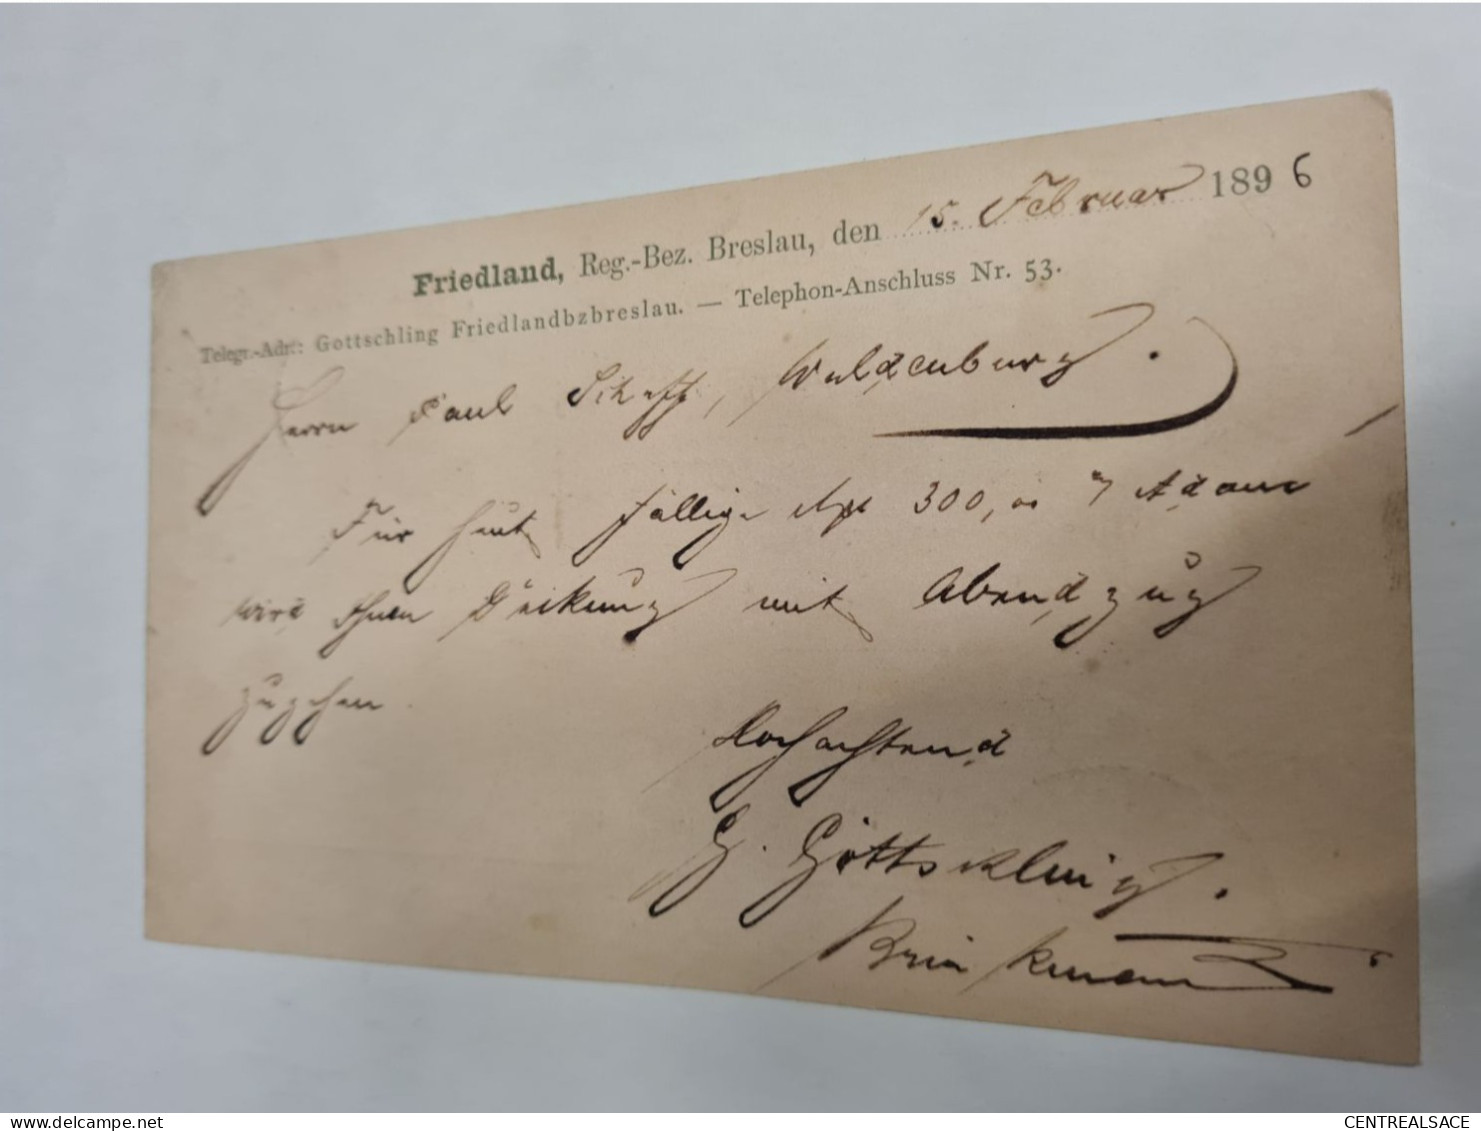 Friedland, Reg.-Bez. Breslau, den 15. Februar 1896
Telegr.-Adr.: Gottschling Friedlandbzbreslau. — Telephon-Anschluss Nr. 53.
Herrn Paul Schaff, Waldenburg.
Für heut fällige 300, Adam
wird Ihnen Deckung mit Abendzug
zugehen.
Hochachtend
G. Gottschling.
Brinkmann
delcampe.net
CENTREALSACE